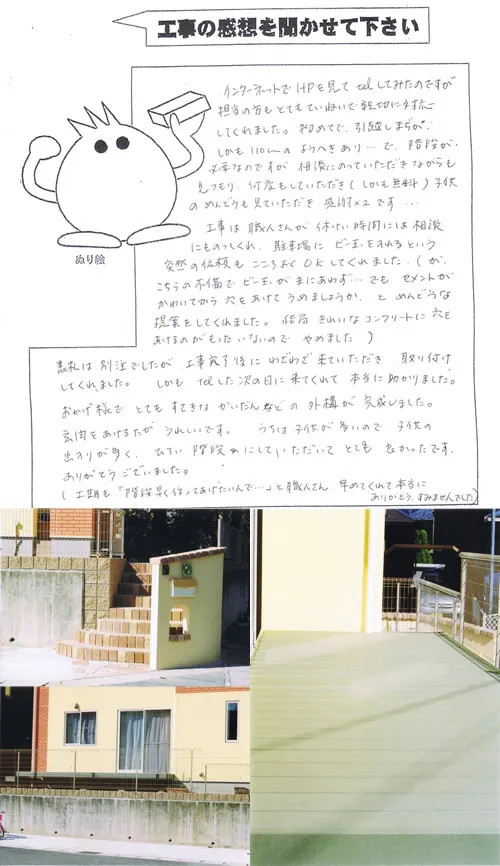 工事の感想を聞かせて下さい
インターネットでHPを見てtelしてみたのですが
担当の方もとてもていねいで親切に対応
してくれました。初めてで、引越しまぢか、
しかも110cmのようへきあり…で、階段が
必要なのですが 相談にのっていただきながらも
見つもり、何度もしていただき(しかも無料)子供
のめんどうも見ていただき 感謝×2です….
工事は職人さんが休けい時間には相談
にものってくれ、駐車場に ビー玉を入れるという
突然の依頼も こころよくOKしてくれました。(が、
こちらの不備で ビー玉がまにあわず…でも、セメントが
かわいてから穴をあけてうめましょうか、と めんどうな
提案をしてくれました。結局 きれいなコンクリートに穴を
あけるのがもったいないので やめました )
ぬり絵
表札は別注でしたが 工事完了後に わざわざ来ていただき、取り付け
してくれました。 しかも telした次の日に来てくれて 本当に助かりました。
おかげ様で とても すてきな かいだんなどの 外構が完成しました。
玄関をあけるたび うれしいです。 うちは子供が 多いので 子供の
出入りが多く、 ひろい 階段 にして いただいて とても 良かったです。
ありがとうございました。
(工期も「階段早く作ってあげたいんで…」と職人さん、早めてくれて本当に
ありがとう、すみませんでした)